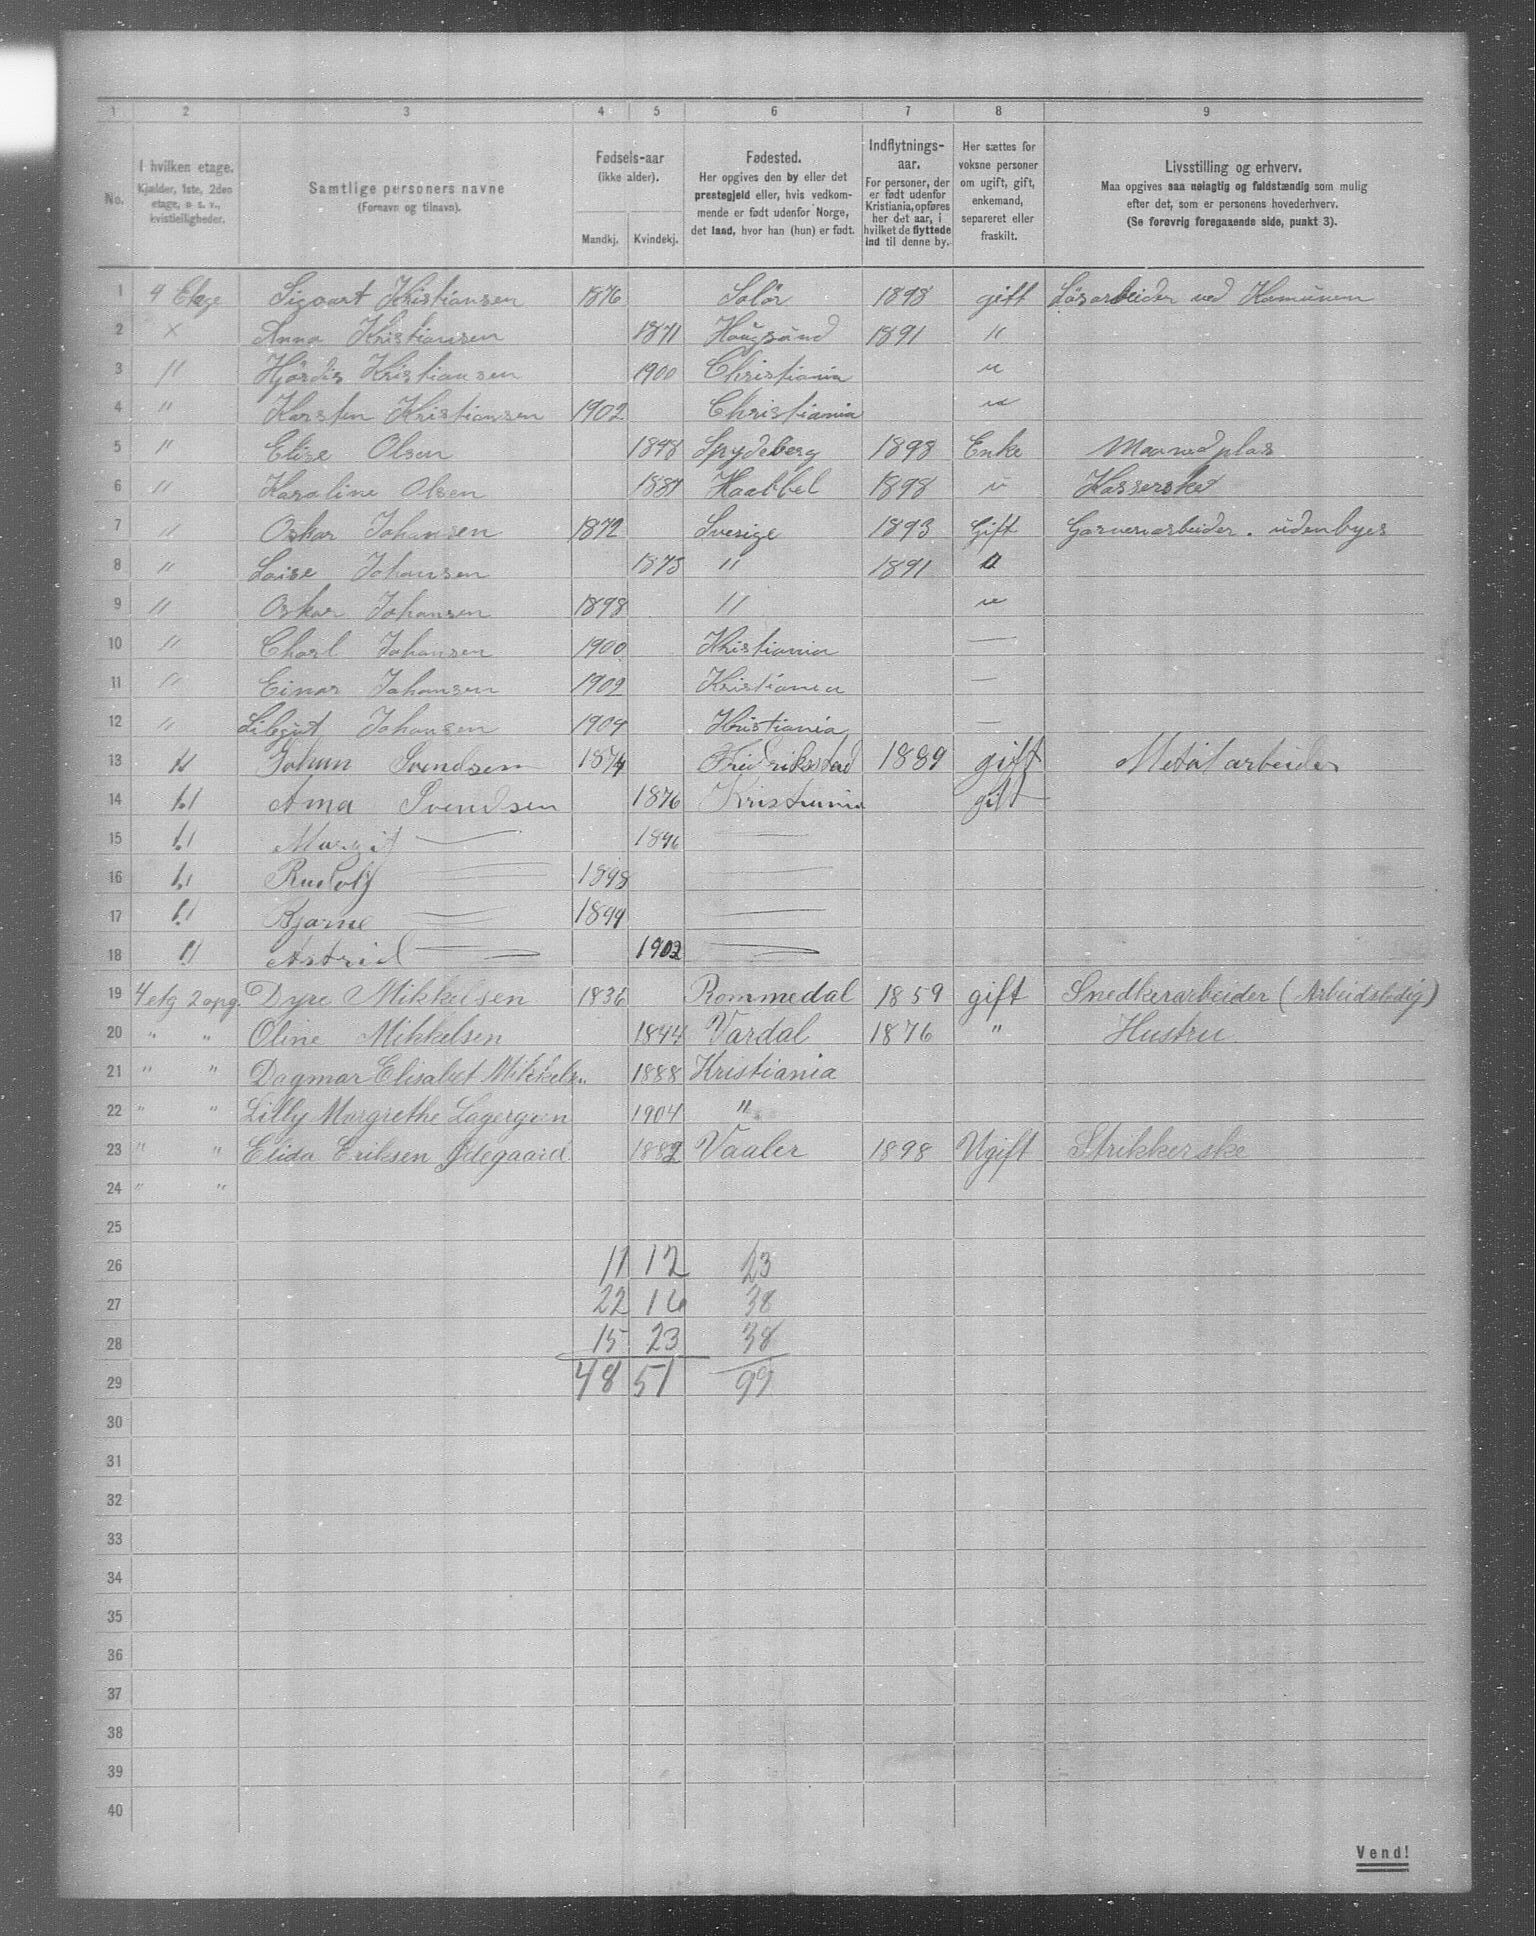 1 2 3 4 5 6 7 8 9
No.
I hvilken etage.
Kjælder, 1ste, 2den etage, o s. v., kvistleiligheder.
Samtlige personers navne
(Fornavn og tilnavn).
Fødsels-aar
(ikke alder).
Mandkj. Kvindekj.
Fødested.
Her opgives den by eller det
prestegjeld eller, hvis vedkom-
mende er født udenfor Norge,
det land, hvor han (hun) er født.
Indflytnings-
aar.
For personer, der
er født udenfor
Kristiania, opføres
her det aar, i
hvilket de flyttede
ind til denne by.
Her sættes for
voksne personer
om ugift, gift,
enkemand,
separeret eller
fraskilt.
Livsstilling og erhverv.
Maa opgives saa nøiagtig og fuldstændig som mulig
efter det, som er personens hovederhverv.
(Se forøvrig foregaaende side, punkt 3).
1 4 Etage Sigvart Kristiansen 1876 Solør 1898 gift Løsarbeider ved Komunen
2 × Anna Kristiansen 1871 Hougsund 1891 "
3 " Hjørdis Kristiansen 1900 Christiania "
4 " Karsten Kristiansen 1902 Christiania "
5 " Elise Olsen 1848 Spydeberg 1898 Enke Maanedplas
6 " Karoline Olsen 1881 Haabbel 1898 u Kasserske
7 " Oskar Johansen 1872 Sverige 1893 Gift Garverarbeider. udenbyes
8 " Loise Johansen 1875 " 1891 "
9 " Oskar Johansen 1898 " "
10 " Charl Johansen 1900 Kristiania —
11 " Einar Johansen 1902 Kristiania —
12 " Johansen 1904 Kristiania —
13 " Johan Svendsen 1874 Fredriksstad 1889 gift Metalarbeider
14 " Anna Svendsen 1876 Kristiania gift
15 " Margit — 1896 —
16 " Rudolf — 1898 —
17 " Bjarne — 1899 —
18 " Astrid — 1902 —
19 4 etg 2 opg. Dyre Mikkelsen 1836 Rommedal 1859 gift Snedkerarbeider (Arbeidsledig)
20 " " Oline Mikkelsen 1844 Vardal 1876 " Hustru
21 " " Dagmar Elisabet Mikkelsen 1888 Kristiania
22 " " Lilly Margrethe Lagergren 1904 "
23 " " Elida Eriksen Ødegaard 1882 Vaaler 1898 Ugift Strikkerske
24 " "
25
26 11 12 23
27 22 16 38
28 15 23 38
29 48 51 99
30
31
32
33
34
35
36
37
38
39
40
Vend!